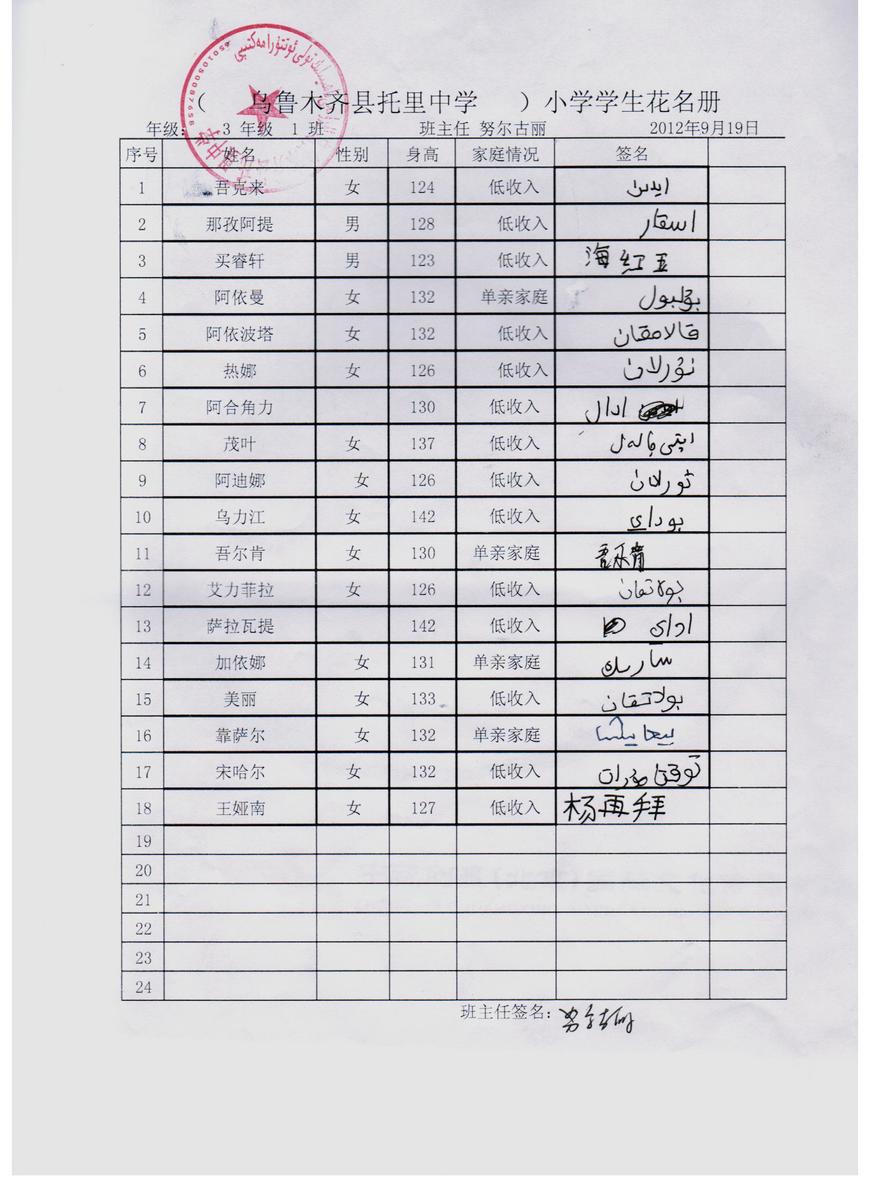 （ 乌鲁木齐县托里中学 ）小学学生花名册
年级： 3 年级 1 班 班主任 努尔古丽 2012年9月19日
序号 姓名 性别 身高 家庭情况 签名
1 吾克来 女 124 低收入
2 那孜阿提 男 128 低收入 اسقار
3 买睿轩 男 123 低收入 海红玉
4 阿依曼 女 132 单亲家庭
5 阿依波塔 女 132 低收入 قالامقان
6 热娜 女 126 低收入 نۇرلان
7 阿合角力 130 低收入 ادال
8 茂叶 女 137 低收入
9 阿迪娜 女 126 低收入 نورلان
10 乌力江 女 142 低收入 بوداي
11 吾尔肯 女 130 单亲家庭 吾尔肯
12 艾力菲拉 女 126 低收入 بولاتقان
13 萨拉瓦提 142 低收入 اداي
14 加依娜 女 131 单亲家庭
15 美丽 女 133 低收入 بولاتقان
16 靠萨尔 女 132 单亲家庭
17 宋哈尔 女 132 低收入
18 王娅南 女 127 低收入 杨再拜
19
20
21
22
23
24
班主任签名：努尔古丽